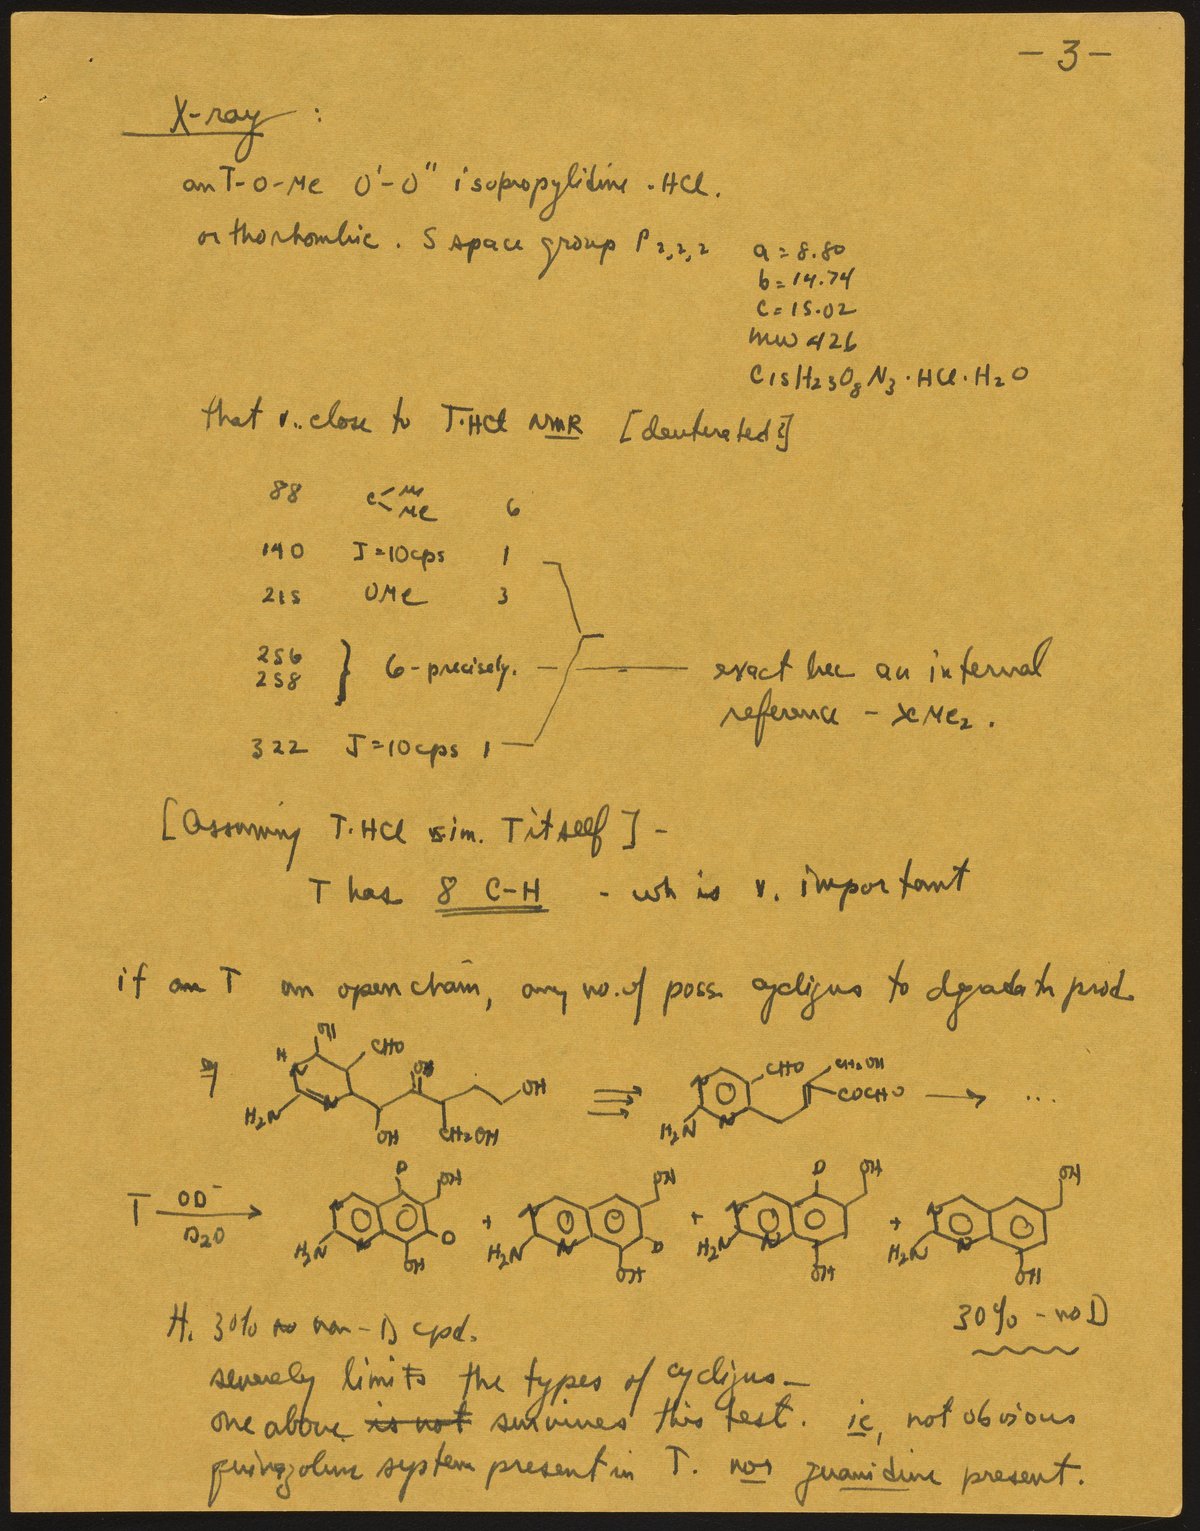 - 3 -
X-ray :
an T-O-Me O'-O" isopropylidine . HCl.
orthorhombic . S space group P 2,2,2
a = 8.80
b = 14.74
c = 15.02
mw 426
C15H23O8N3 · HCl · H2O
that v. close to T·HCl NMR [deuterated?]
88 C Me Me 6
140 J=10cps 1
215 OMe 3
256
258 } 6-precisely.
exact bec an internal
reference - >CMe2 .
322 J=10cps 1
[Assuming T·HCl sim. T itself] -
T has 8 C-H - wh is v. important
if an T an open chain, any no. of poss. to prod.
eg
OH
H
N
CHO
H2N
N
OH
OH
CH2OH
OH
N
CHO
CH2OH
COCHO
H2N
N
...
T OD⁻ D2O
N D OH
H2N N OH D
+
N OH
H2N N OH D
+
N D OH
H2N N OH
+
N OH
H2N N OH
30% - no D
H. 30% no non-D cpd.
severely limits the types of
one above is not survives this test. ie, not obvious
system present in T. nor guanidine present.